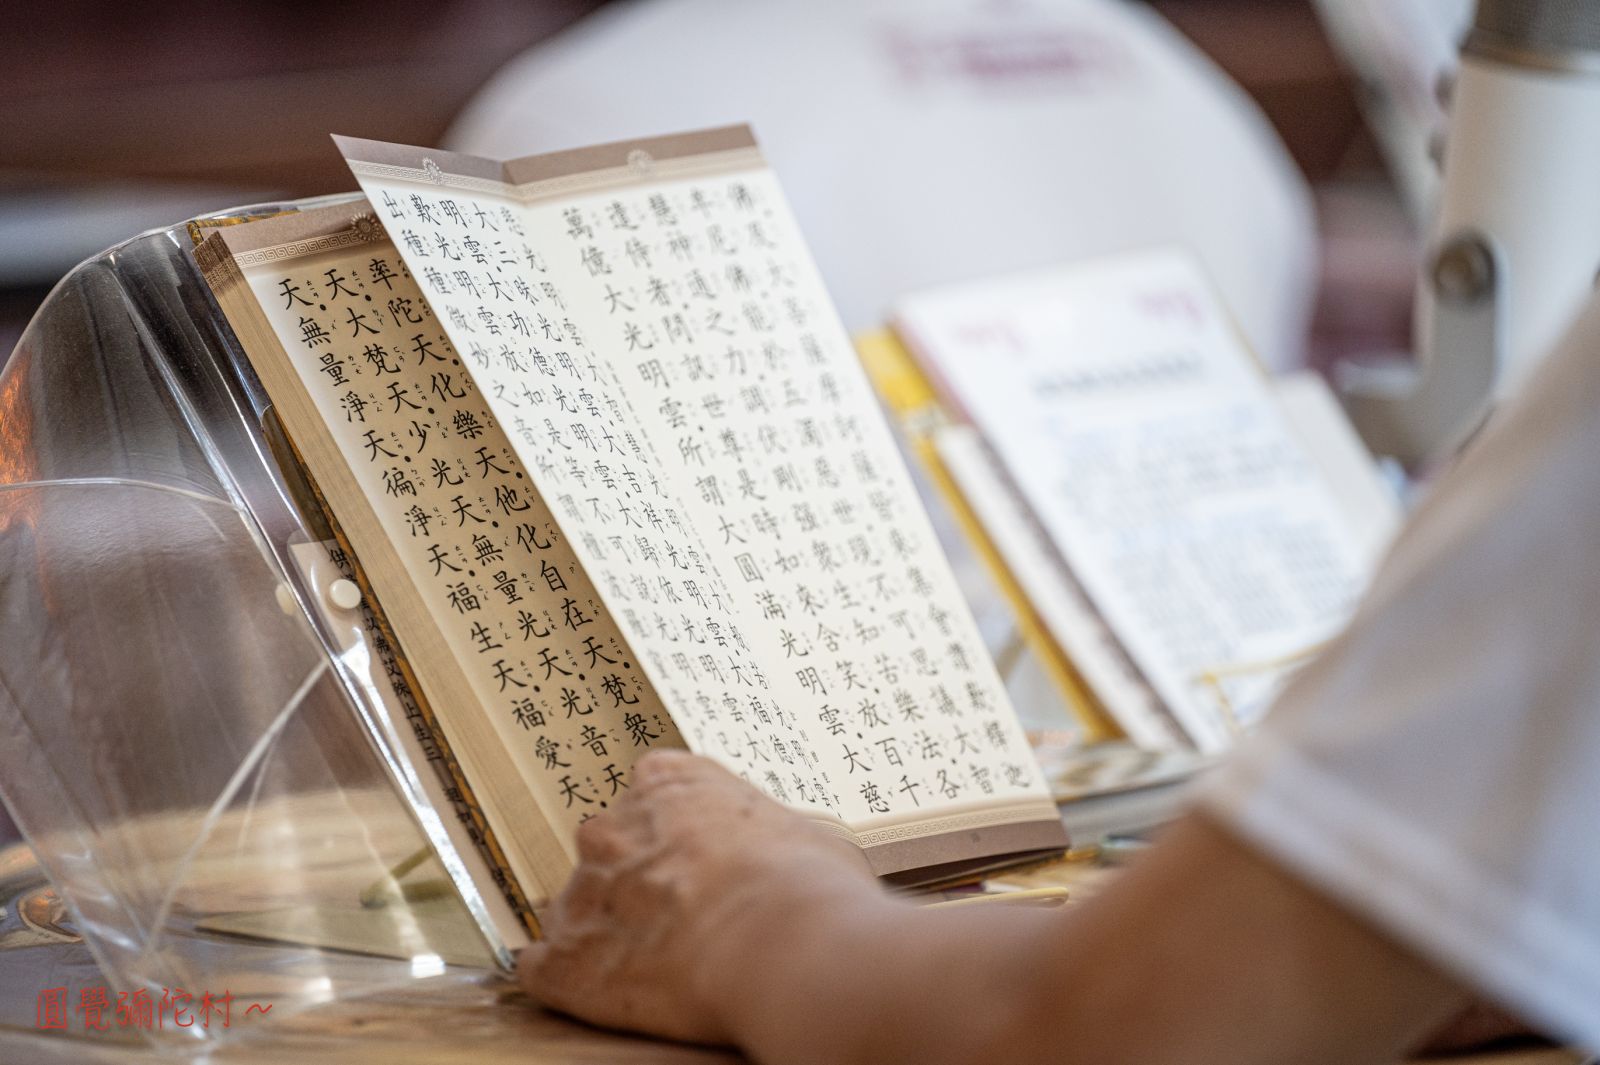 佛及大菩薩摩訶薩皆來集會讚歎釋迦
牟尼佛能於五濁惡世現不可思議大智
慧神通之力調伏剛強眾生知苦樂法各
遣侍者問訊世尊是時如來含笑放百千
萬億大光明雲所謂大圓滿光明雲大慈
悲光明雲大智慧光明雲大般若光明雲
大三昧光明雲大吉祥光明雲大福德光
明雲大功德光明雲大歸依光明雲大讚
歎光明雲放如是等不可說光明雲已
出種種微妙之音所謂檀波羅蜜音
率陀天化樂天他化自在天梵眾
天大梵天少光天無量光天光音天
天無量淨天徧淨天福生天福愛天
圓覺彌陀村~